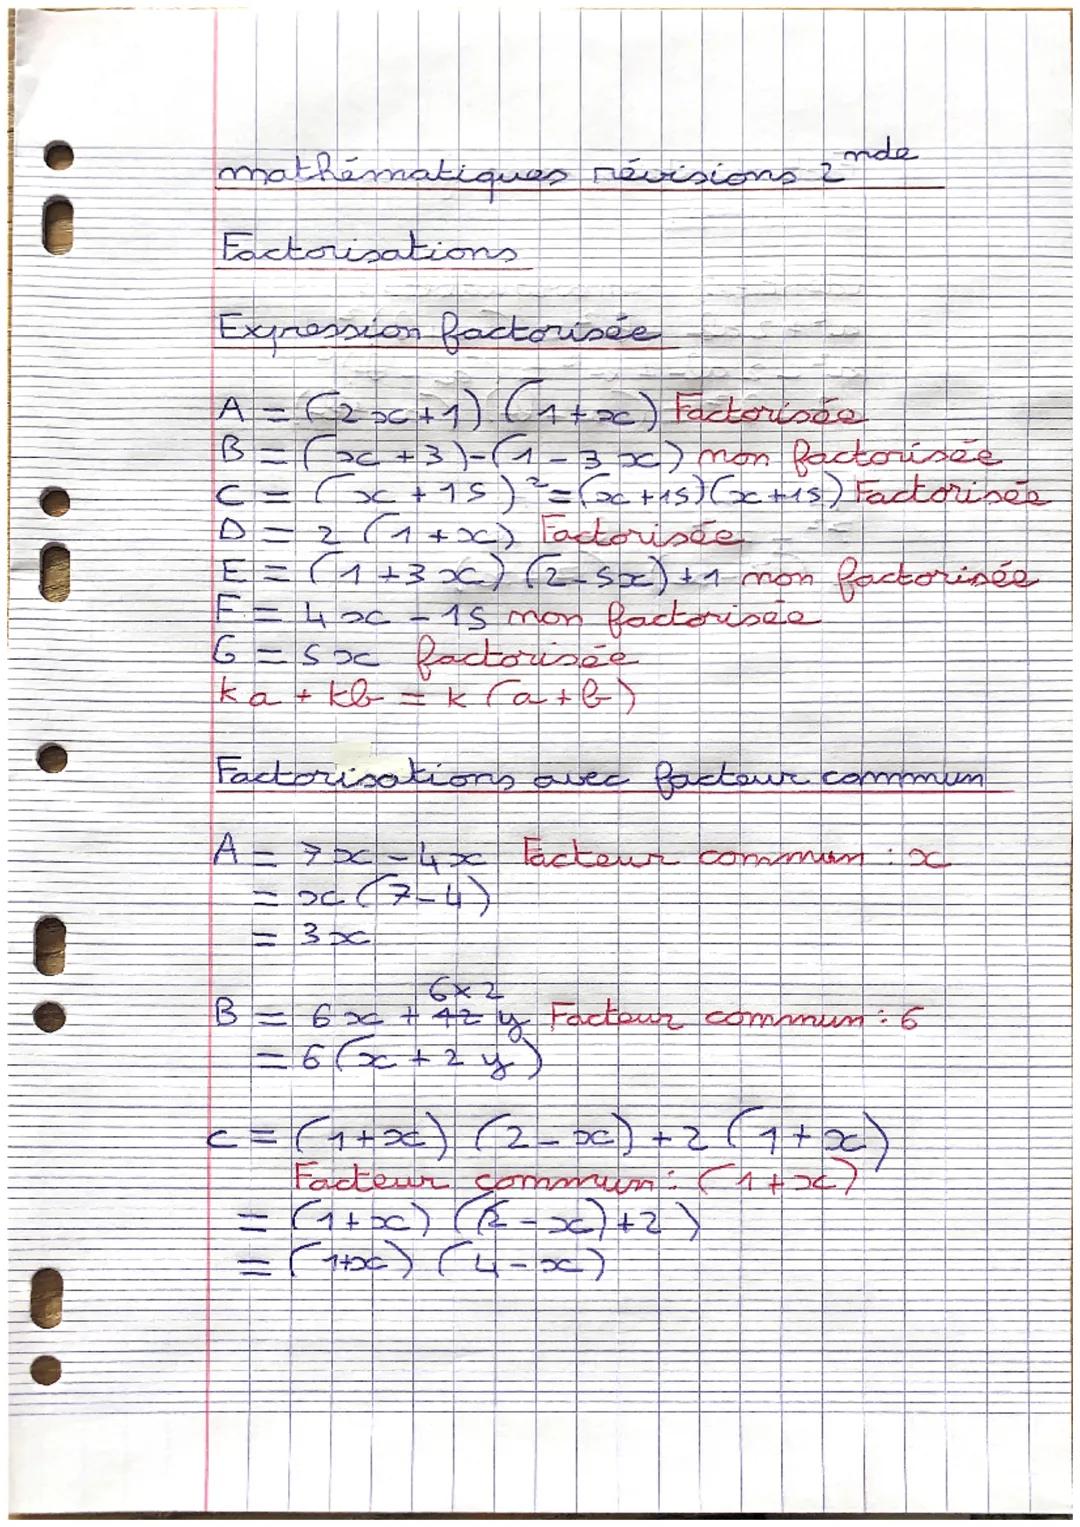 mathématiques révisions 2nde
Factorisations
Expression factorisée
A = (2x+1) (1+x) Factorisée
B = (x+3)-(1-3x) non factorisée
C = (x+15)² = (x+15)(x+15) Factorisée
D = 2 (1+x) Factorisée
E = (1+3x) (2-5x)+1 non factorisée
F = 4x - 15 non factorisée
G = 5x factorisée
ka + kb = k (a+b)
Factorisations avec facteur commun
A = 7x - 4x Facteur commun : x
= x (7-4)
= 3x
6x2
B = 6x + 12 y Facteur commun : 6
= 6 (x + 2 y)
C = (1+x) (2-x) + 2 (1+x)
Facteur commun : (1+x)
= (1+x) ((2-x)+2)
= (1+x) (4-x)